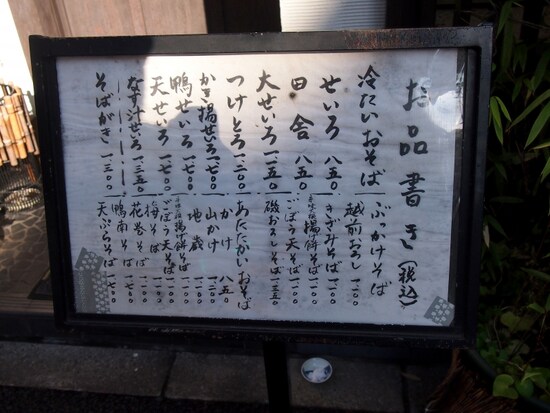 お品書き(税込)
冷たいおそば
せいろ 八五〇
田舎 八五〇
大せいろ 一一五〇
つけとろ 一二〇〇
かき揚せいろ 一七〇〇
鴨せいろ 一七〇〇
天せいろ 一七〇〇
なす汁せいろ 一三五〇
そばがき 一三〇〇
ぶっかけそば
越前おろし 一一〇〇
きざみそば 一一〇〇
揚げ餅そば 一二〇〇
ごぼう天そば 一二〇〇
磯おろしそば 一三五〇
あたたかいおそば
かけ 八五〇
山かけ 一二〇〇
地蔵 一一〇〇
揚げ餅そば 一二〇〇
ごぼう天そば 一二〇〇
梅そば
花巻そば
鴨南そば 一七〇〇
天ぷらそば 一七〇〇